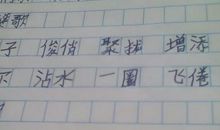 谣歌
子 俊俏 聚找 增添
下 沾水 一圈 飞倦